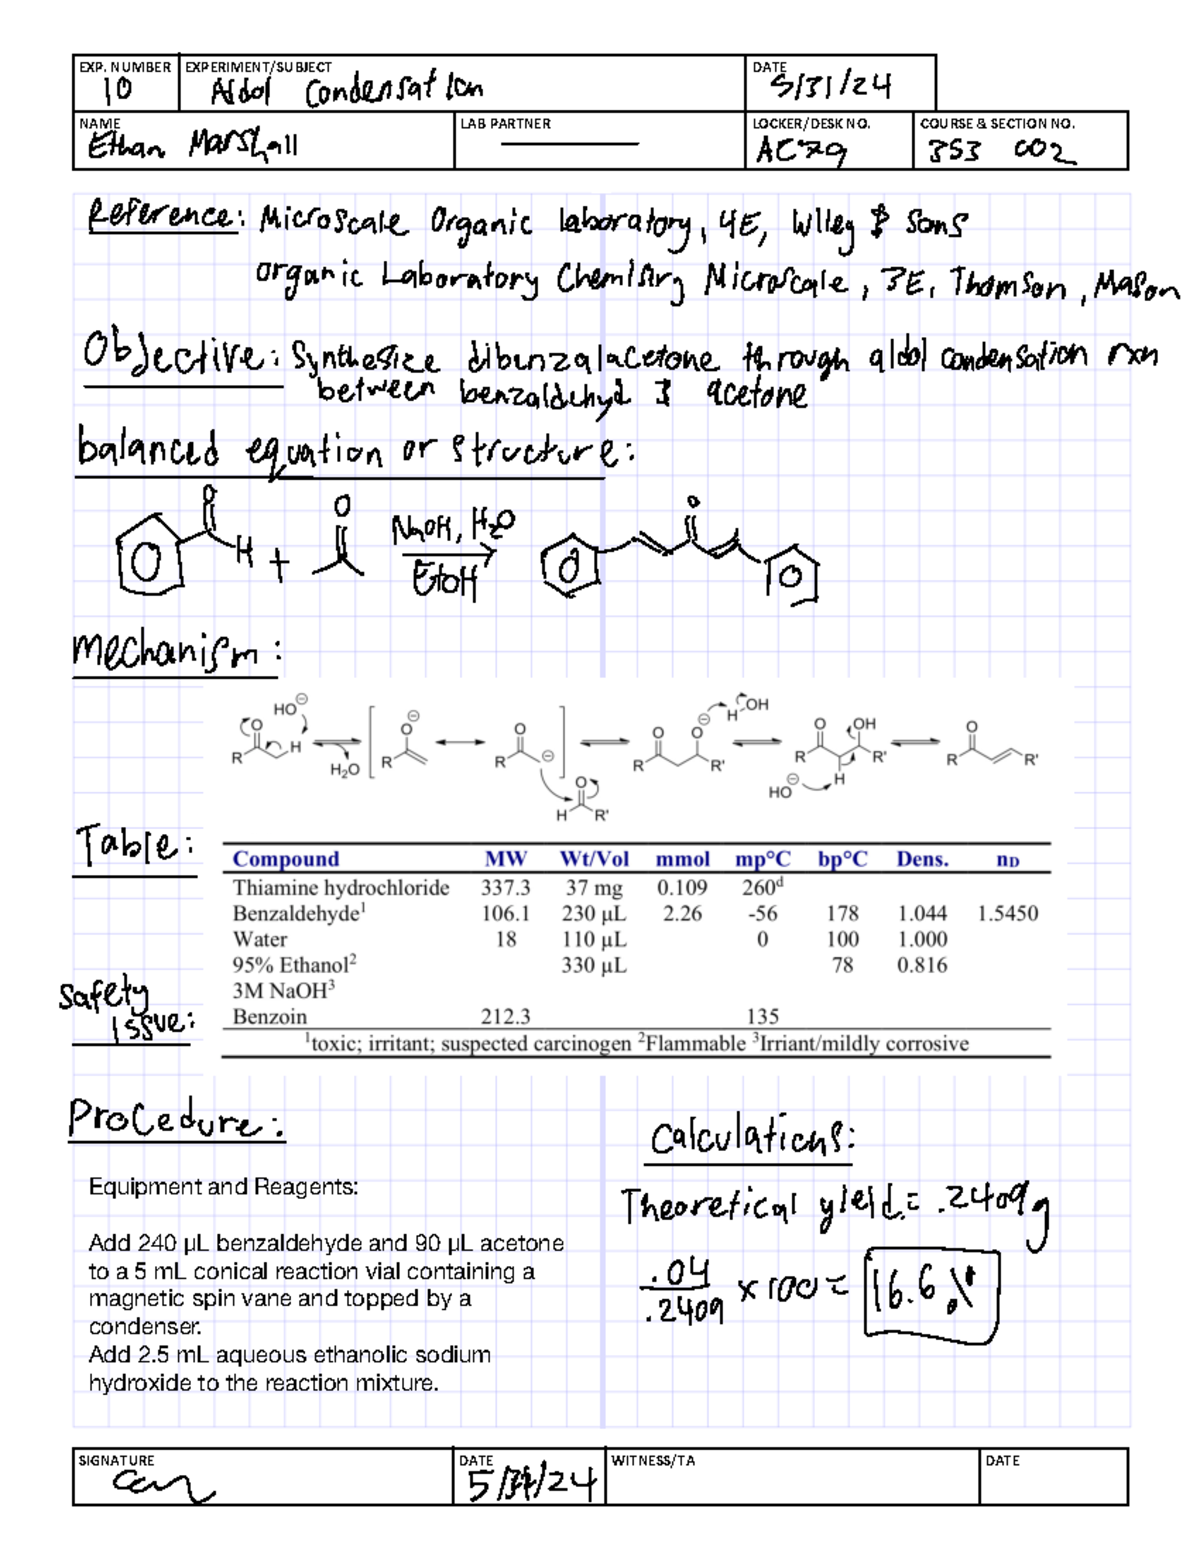 EXP. NUMBER EXPERIMENT/SUBJECT DATE
10 Aldol Condensation 5/31/24
NAME LAB PARTNER LOCKER/DESK NO. COURSE & SECTION NO.
Ethan Marshall AC79 353 002
Reference: Microscale Organic laboratory, 4E, Wiley & Sons
Organic Laboratory Chemistry Microscale, 3E, Thomson, Mason
Objective: Synthesize dibenzalacetone through aldol condensation rxn
between benzaldehyd & acetone
balanced equation or structure:
O
H
+
O
NaOH, H2O
EtOH
O
mechanism:
HO⊖ O H R H2O
O⊖ R
O R ⊖
O H R'
O O⊖ R R' H OH
O OH R R' H HO⊖
O R R'
Table:
Compound MW Wt/Vol mmol mp°C bp°C Dens. nD
Thiamine hydrochloride 337.3 37 mg 0.109 260d
Benzaldehyde1 106.1 230 µL 2.26 -56 178 1.044 1.5450
Water 18 110 µL 0 100 1.000
95% Ethanol2 330 µL 78 0.816
3M NaOH3
Benzoin 212.3 135
1toxic; irritant; suspected carcinogen 2Flammable 3Irriant/mildly corrosive
Safety
issue:
Procedure:
Equipment and Reagents:
Add 240 µL benzaldehyde and 90 µL acetone
to a 5 mL conical reaction vial containing a
magnetic spin vane and topped by a
condenser.
Add 2.5 mL aqueous ethanolic sodium
hydroxide to the reaction mixture.
Calculations:
Theoretical yield = .2409g
.04
.2409
x 100 = 16.6%
SIGNATURE DATE WITNESS/TA DATE
5/31/24